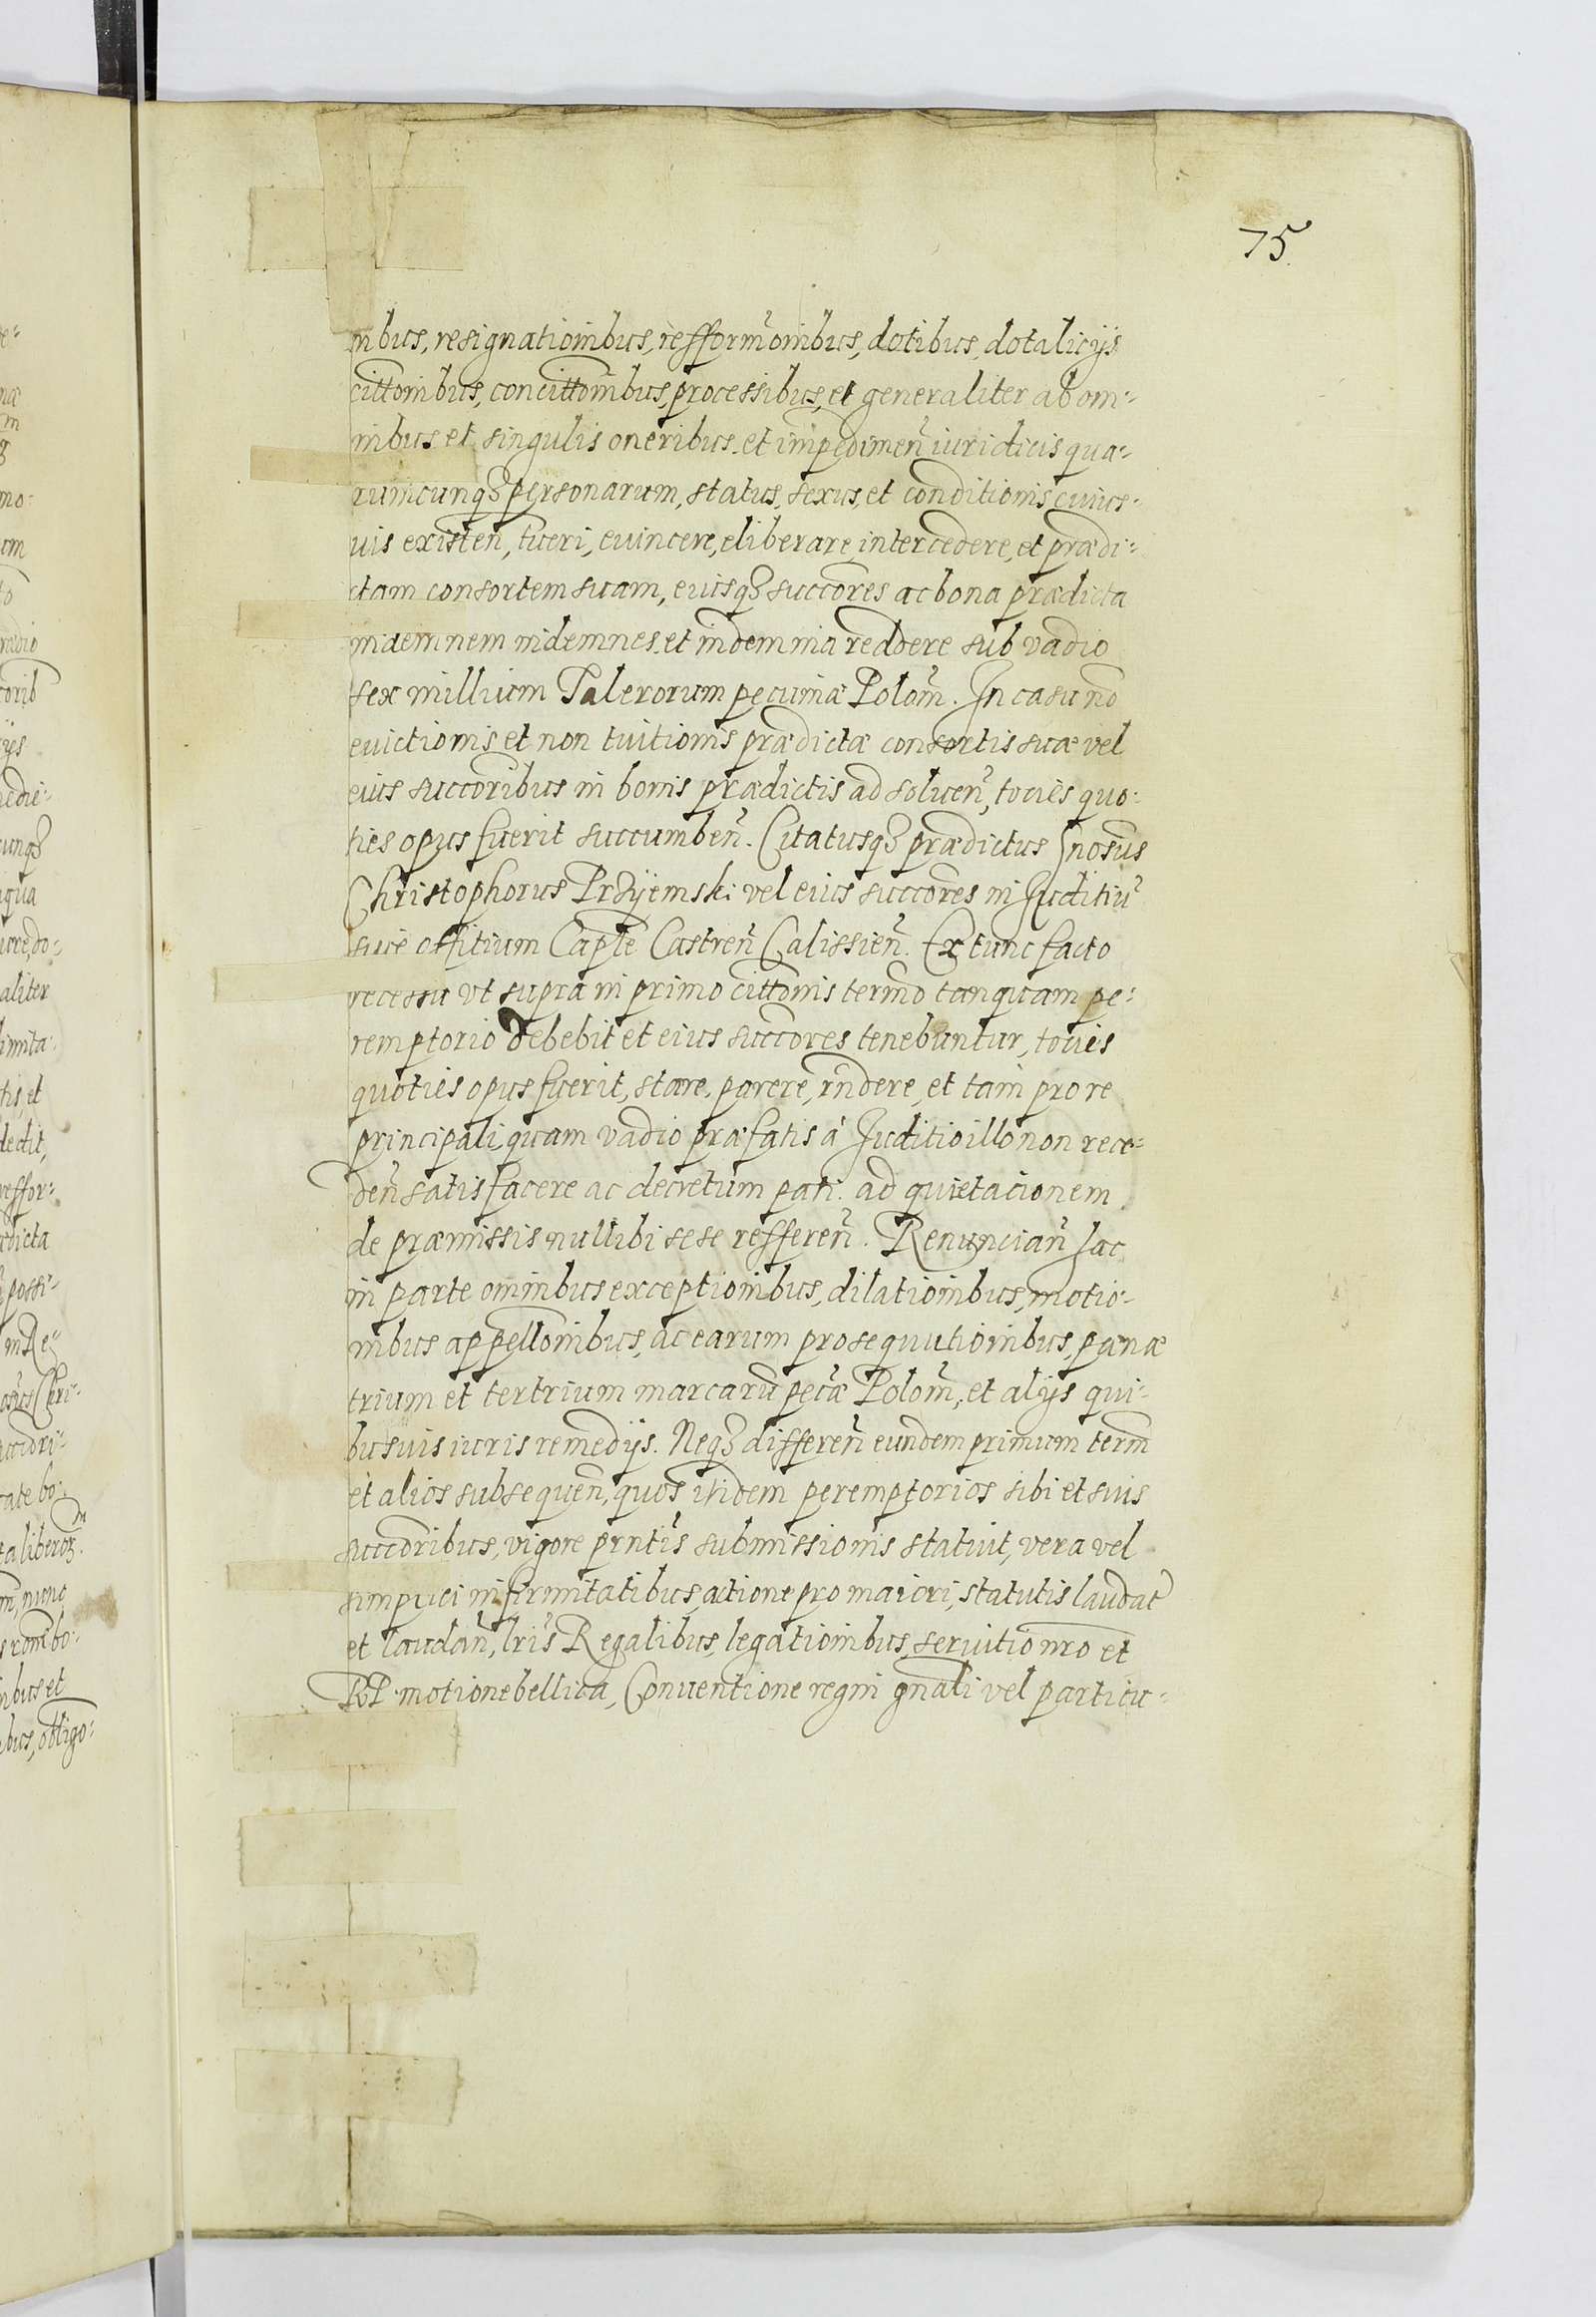 75.
nibus, resignationibus, refformonibus, dotibus, dotalicijs
cittonibus, concittonibus, processibus, et generaliter ab om-
nibus et singulis oneribus et impedimen iuridicis qua-
rumcunq personarum, status, sexus, et conditionis cuius-
uis existen, tueri, euincere, eliberare, intercedere, et prædi-
ctam consortem suam, eiusq succores ac bona prædicta
indemnem indemnes et indemnia reddere sub vadio
sex millium Talerorum pecuniæ Polon. In casu no
euictionis et non tuitionis prædictæ consortis suæ vel
eius succoribus in bonis prædictis ad soluen, toties quo-
ties opus fuerit succumben. Citatusq prædictus Gnosus
Christophorus Przÿiemski vel eius succores in Juditiu
siue offitium Caple Castren Calissien. Ex tunc facto
recessu vt supra in primo cittonis termo tanquam pe-
remptorio debebit et eius succores tenebuntur, toties
quoties opus fuerit, stare, parere, rndere, et tam pro re
principali, quam vadio præfatis à Juditio illo non rece-
den satisfacere ac decretum pati. ad quietacionem
de præmissis nullibi sese refferen. Renuncian hac
in parte omnibus exceptionibus, dilationibus, motio-
nibus appellonibus, ac earum prosequutionibus, pænæ
trium et tertrium marcaru pecæ Polon, et alijs qui-
busuis iuris remedijs. Neq differen eundem primum term
et alios subsequen, quos itidem peremptorios sibi et suis
succoribus, vigore prntis submissionis statuit, vera vel
simplici infirmitatibus, actione pro maiori, statutis laudat
et laudan, lris Regalibus, legationibus, seruitio nro et
RP. motione bellica, Conuentione regni gnali vel particu-